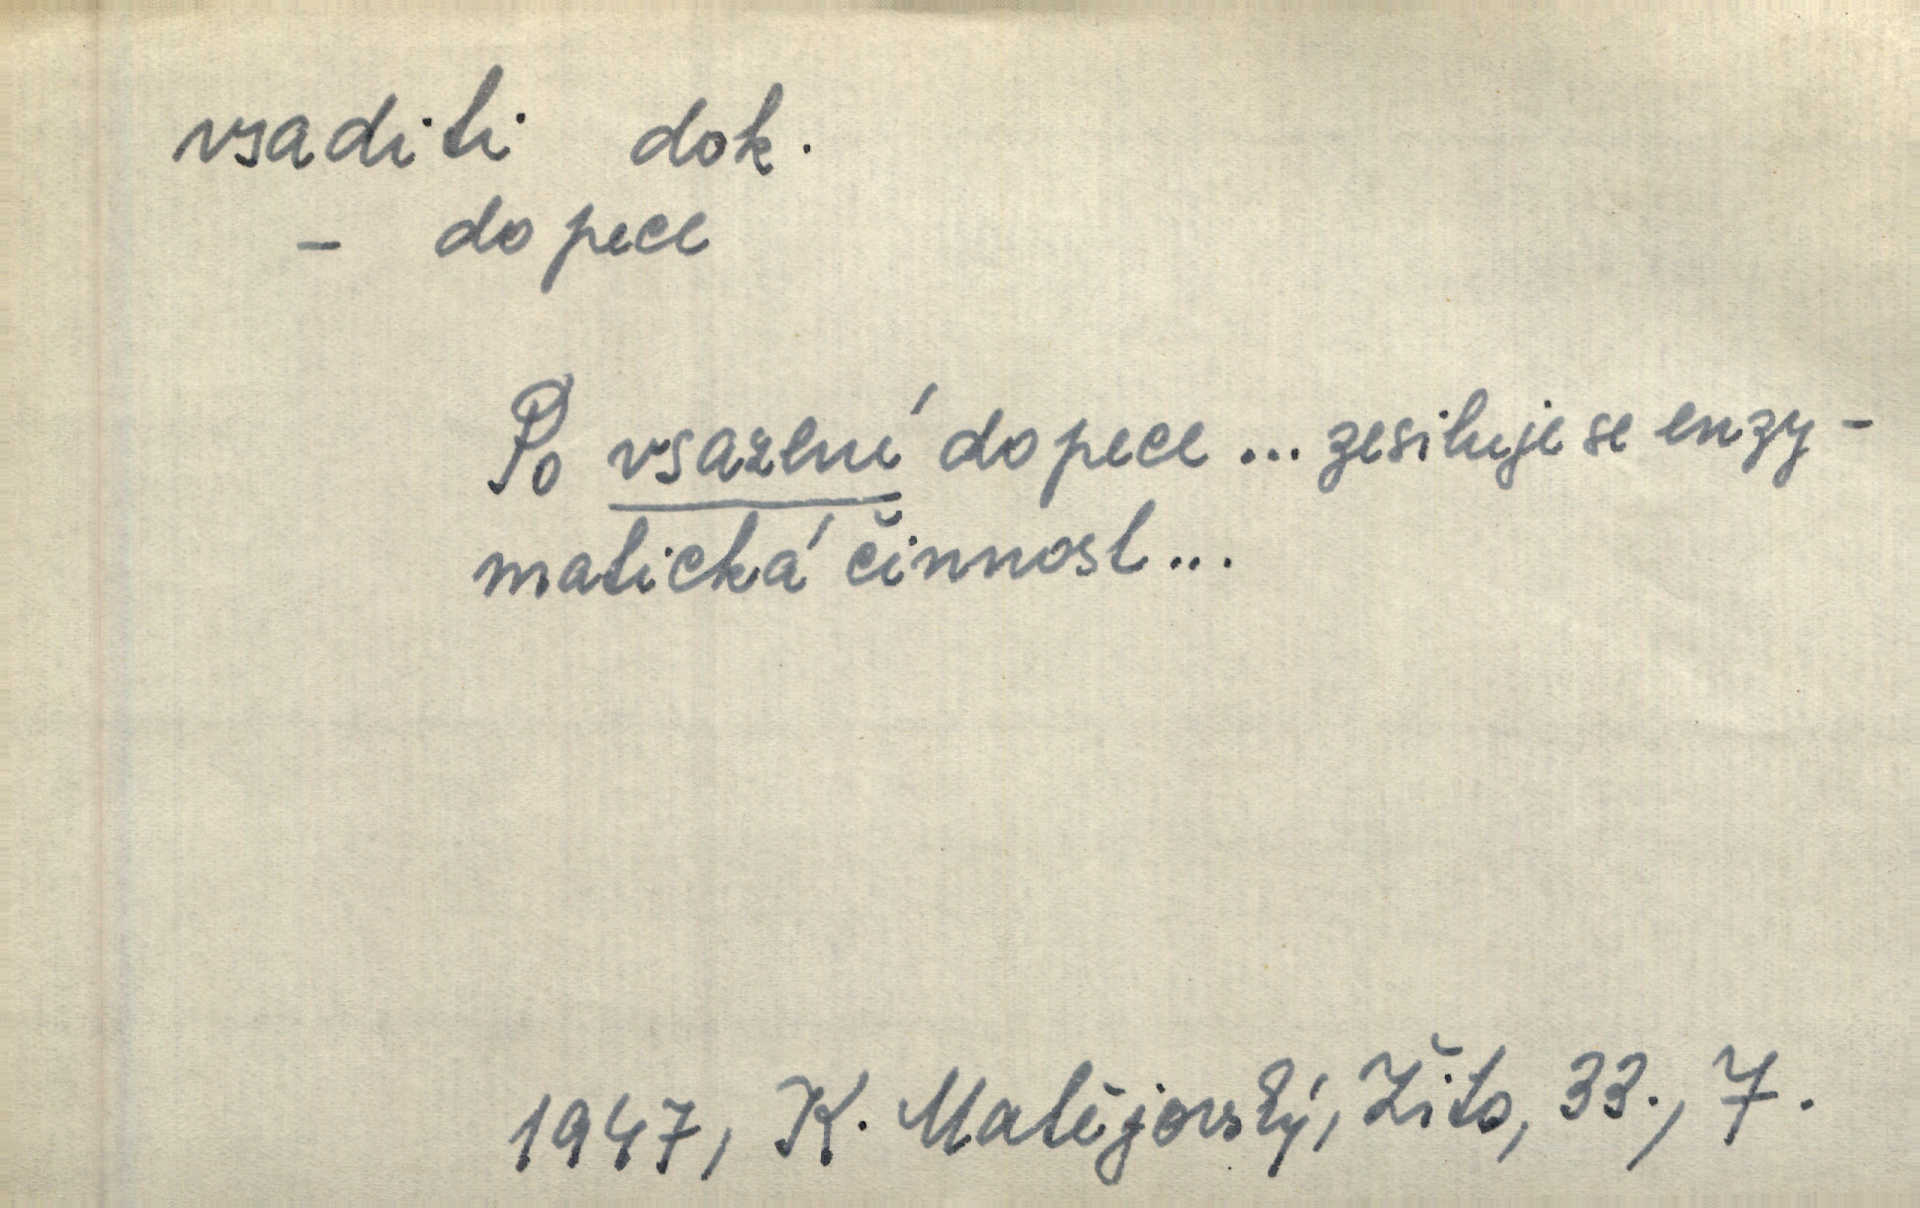 vsaditi dok.
- do pece
Po vsazení do pece ... zesiluje se enzy-
matická činnost...
1947, K. Matějovský, Žito, 33., 7.